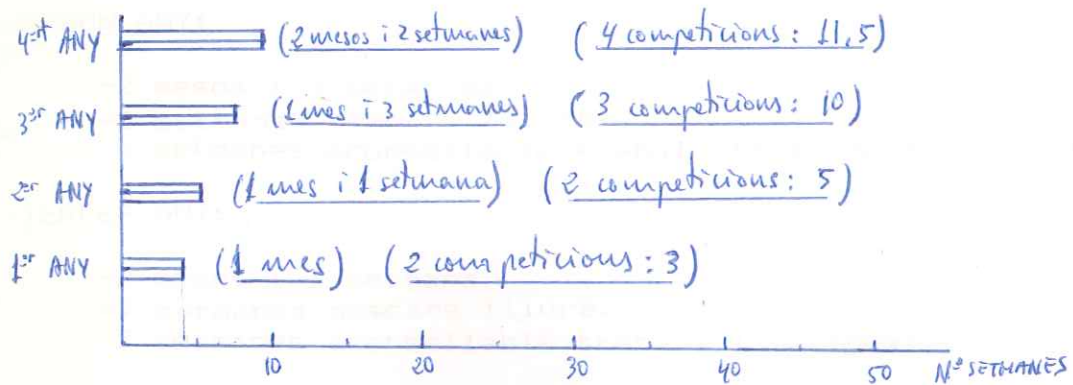 4rt ANY (2 mesos i 2 setmanes) (4 competicions: 11,5)
3er ANY (1 mes i 3 setmanes) (3 competicions: 10)
2on ANY (1 mes i 1 setmana) (2 competicions: 5)
1er ANY (1 mes) (2 competicions: 3)
10 20 30 40 50 Nº SETMANES